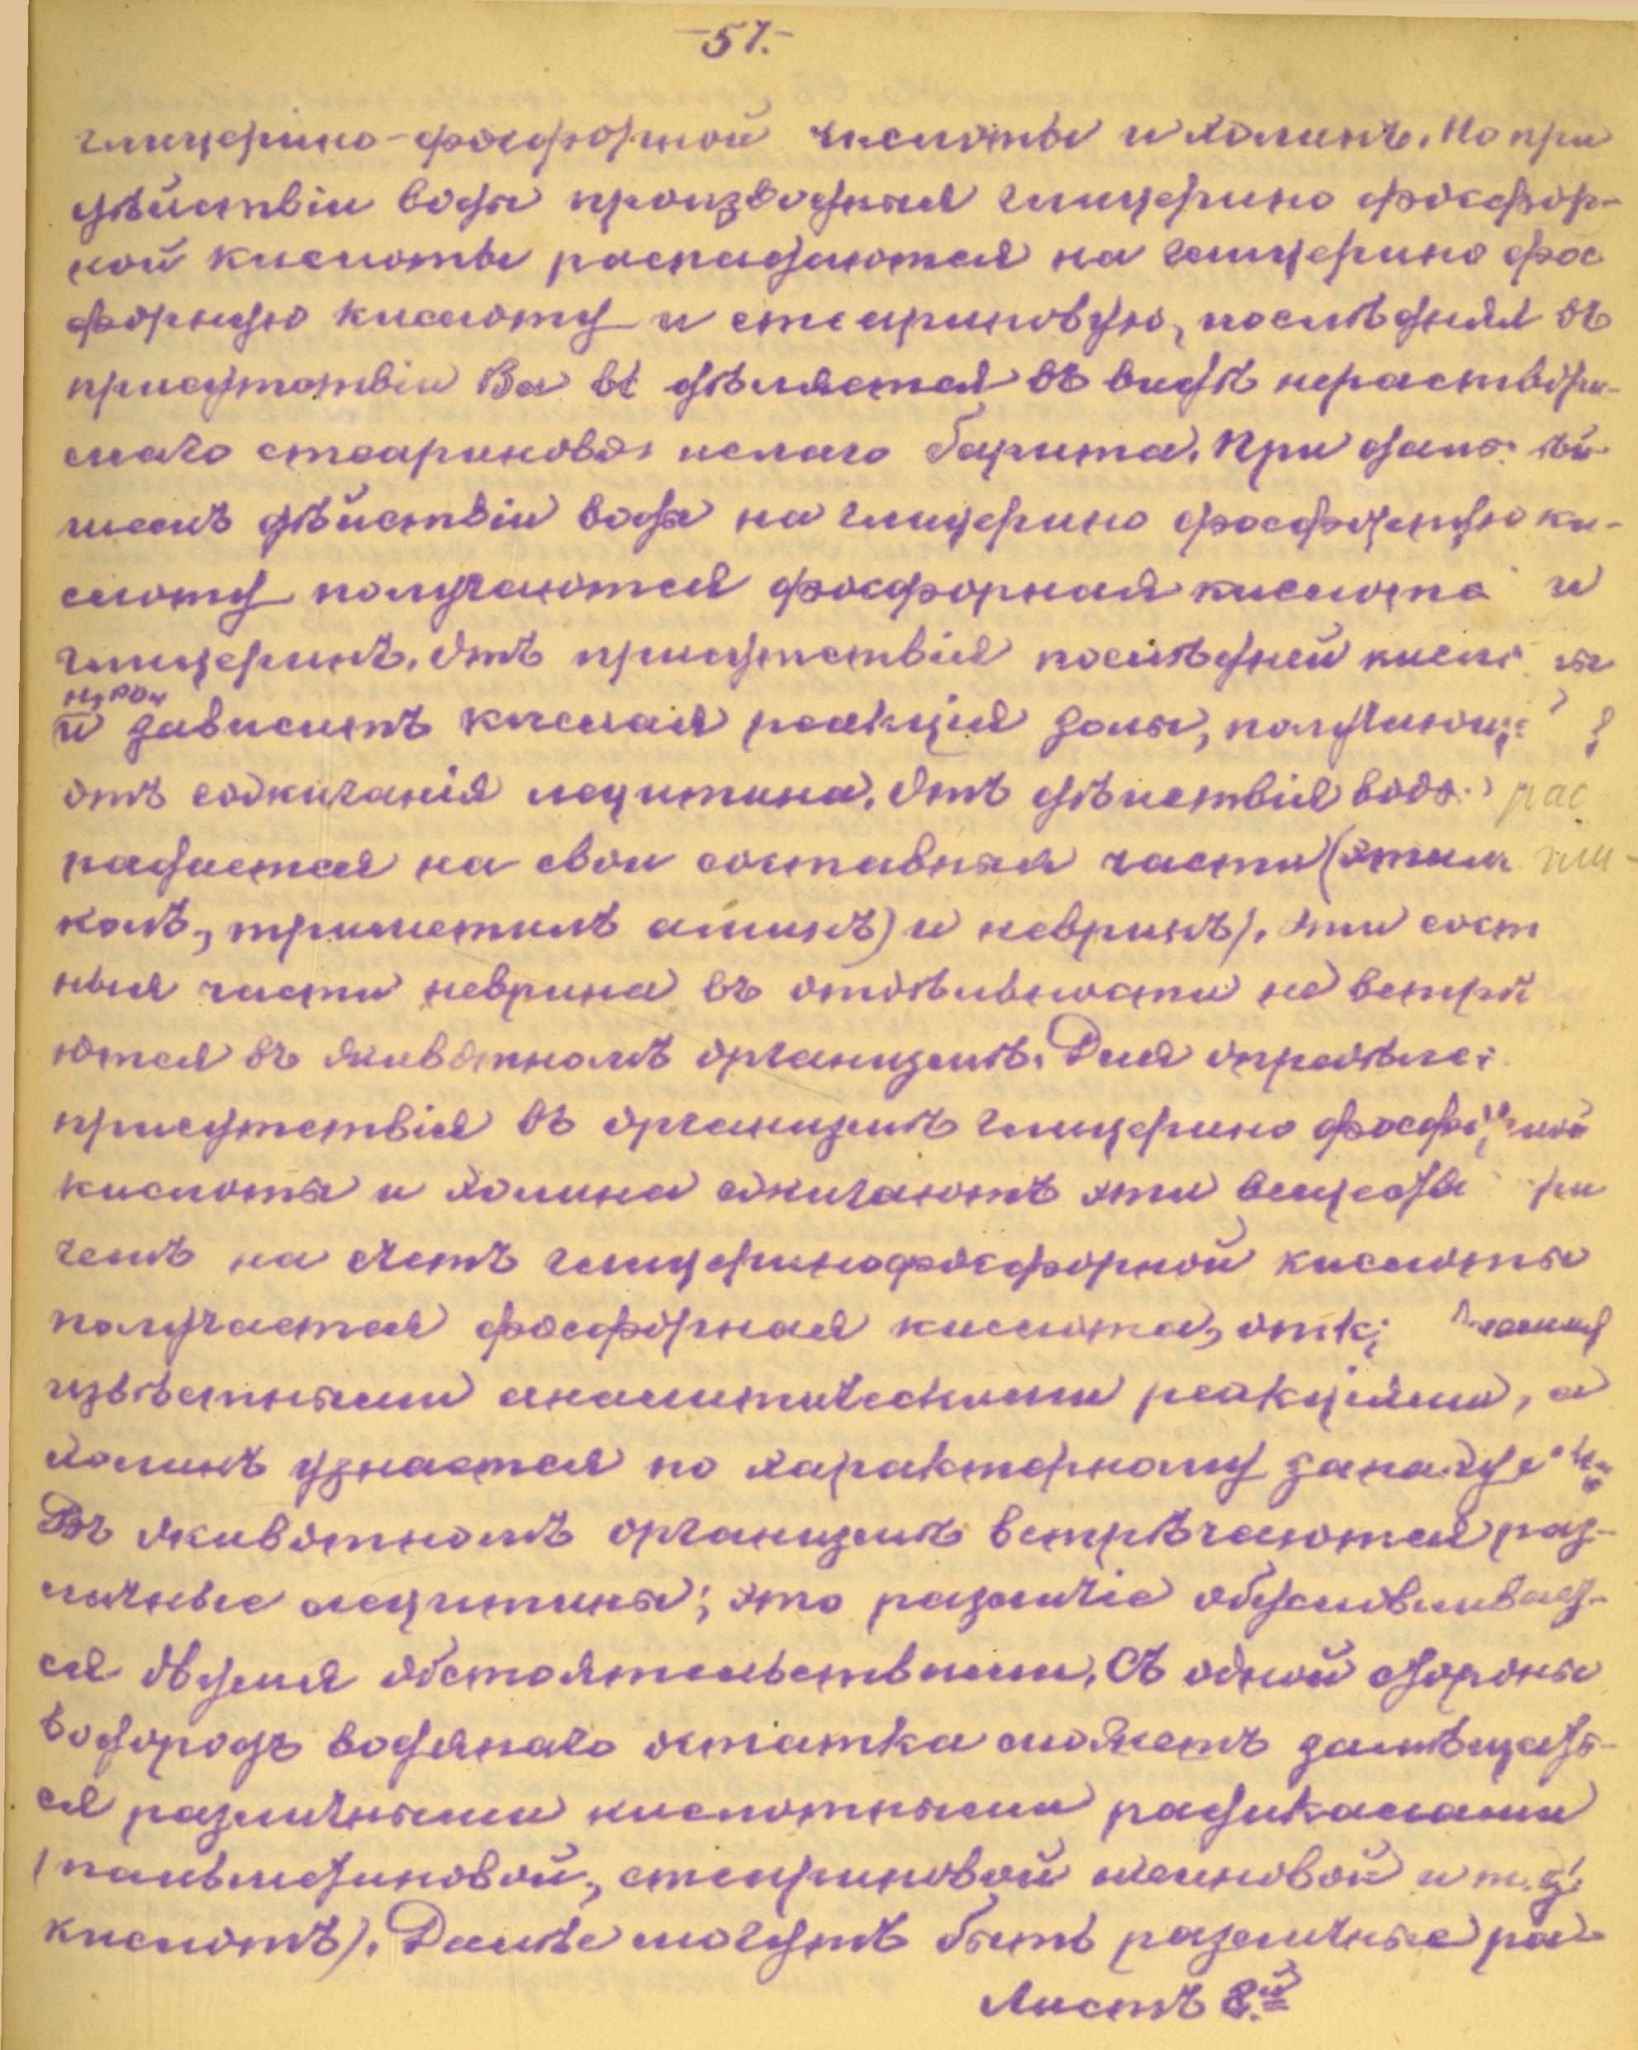 -57.-
глицерино-фосфорной кислоты и холинъ. Но при
дѣйствіи воды производныя глицерино фосфор-
ной кислоты распадаются на глицерино фос
форную кислоту и стеариновую, послѣдняя въ
присутствіи Ba дѣляется въ видѣ нераствори-
маго стеариново кислаго барита. При даль
шемъ дѣйствіи воды на глицерино фосфорную ки-
слоту получаются фосфорная кислота и
глицеринъ. Отъ присутствія послѣдней кисло ты
H3PO4
и зависитъ кислая реакція золы, получающ
отъ сожиганія лецитина. Отъ дѣйствія воды рас
падается на свои составныя части (этил гли-
колъ, триметилъ аминъ) и невринъ). Эти сост
ныя части неврина въ отдѣльности не встрѣ
ются въ животномъ организмѣ. Для опредѣле
присутствія въ организмѣ глицерино фосфорной
кислоты и холина сжигаютъ эти вещества при
чемъ на счетъ глицеринофосфорной кислоты
получается фосфорная кислота, отк
извѣстными аналитическими реакціями, а
холинъ узнается по характерному запаху
Въ животномъ организмѣ встрѣчаются раз-
личные лецитины; это различіе обусловливает-
ся двумя обстоятельствами. Съ одной стороны
водородъ водянаго остатка можетъ замѣщать-
ся различными кислотными радикалами
(пальмитиновой, стеариновой, олеиновой и т.д.
кислотъ). Далѣе могутъ быть различные ра-
Листъ 8.й